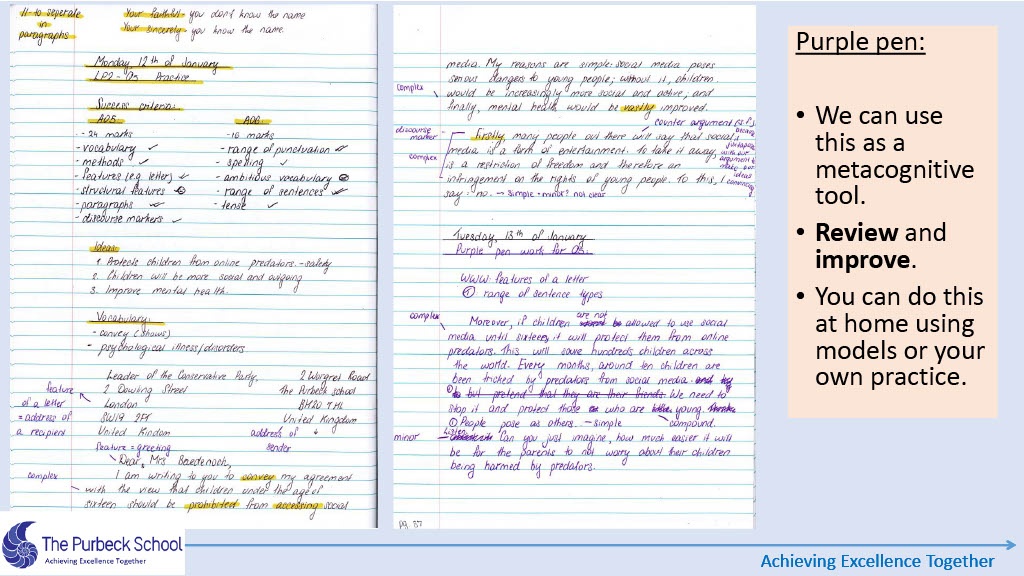 // - to seperate in paragraphs
Your faithful - you don't know the name
Your sincerely - you know the name
Monday, 12th of January
LP2 - Q5 Practice
Success criteria:
AO5
- 24 marks
- vocabulary ✓
- methods ✓
- features (eg. letter) ✓
- structural features
- paragraphs ✓
- discourse markers ✓
AO6
- 16 marks
- range of punctuation
- spelling ✓
- ambitious vocabulary
- range of sentences
- tense ✓
Ideas:
1. Protects children from online predators. - safety
2. Children will be more social and outgoing
3. Improve mental health.
Vocabulary:
- convey (shows)
- psychological illness/disorders
Leader of the Conservative Party,
2 Dowling Street
London
SW19 2PF
United Kindom
2 Worgret Road
The Purbeck school
BH20 4HL
United Kingdom
feature of a letter = address of a recipient
address of sender
feature = greeting
Dear, Mrs Badenoch,
complex
I am writing to you to convey my agreement
with the view that children under the age of
sixteen should be prohibited from accessing social
media. My reasons are simple: social media poses
serious dangers to young people; without it, children
would be increasingly more social and active; and
finally, mental health would be vastly improved.
complex
counter argument
discourse marker
complex
Firstly, many people out there will say that social
media is a form of entertainment. To take it away,
is a restriction of freedom and therefore an
infringement on the rights of young people. To this, I
say: no. - simple - minor? not clear
Tuesday, 13th of January
Purple pen work for Q5.
WWW: features of a letter
range of sentence types
complex
Moreover, if children are not allowed to use social
media until sixteen, it will protect them from online
predators. This will save hundreds children across
the world. Every months, around ten children are
been tricked by predators from social media and
but pretend that they are their friends. We need to
stop it and protect those who are young
People pose as others. - simple
compound.
minor
Listen Can you just imagine, how much easier it will
be for the parents to not worry about their children
being harmed by predators.
Purple pen:
• We can use this as a metacognitive tool.
• Review and improve.
• You can do this at home using models or your own practice.
The Purbeck School
Achieving Excellence Together
Achieving Excellence Together